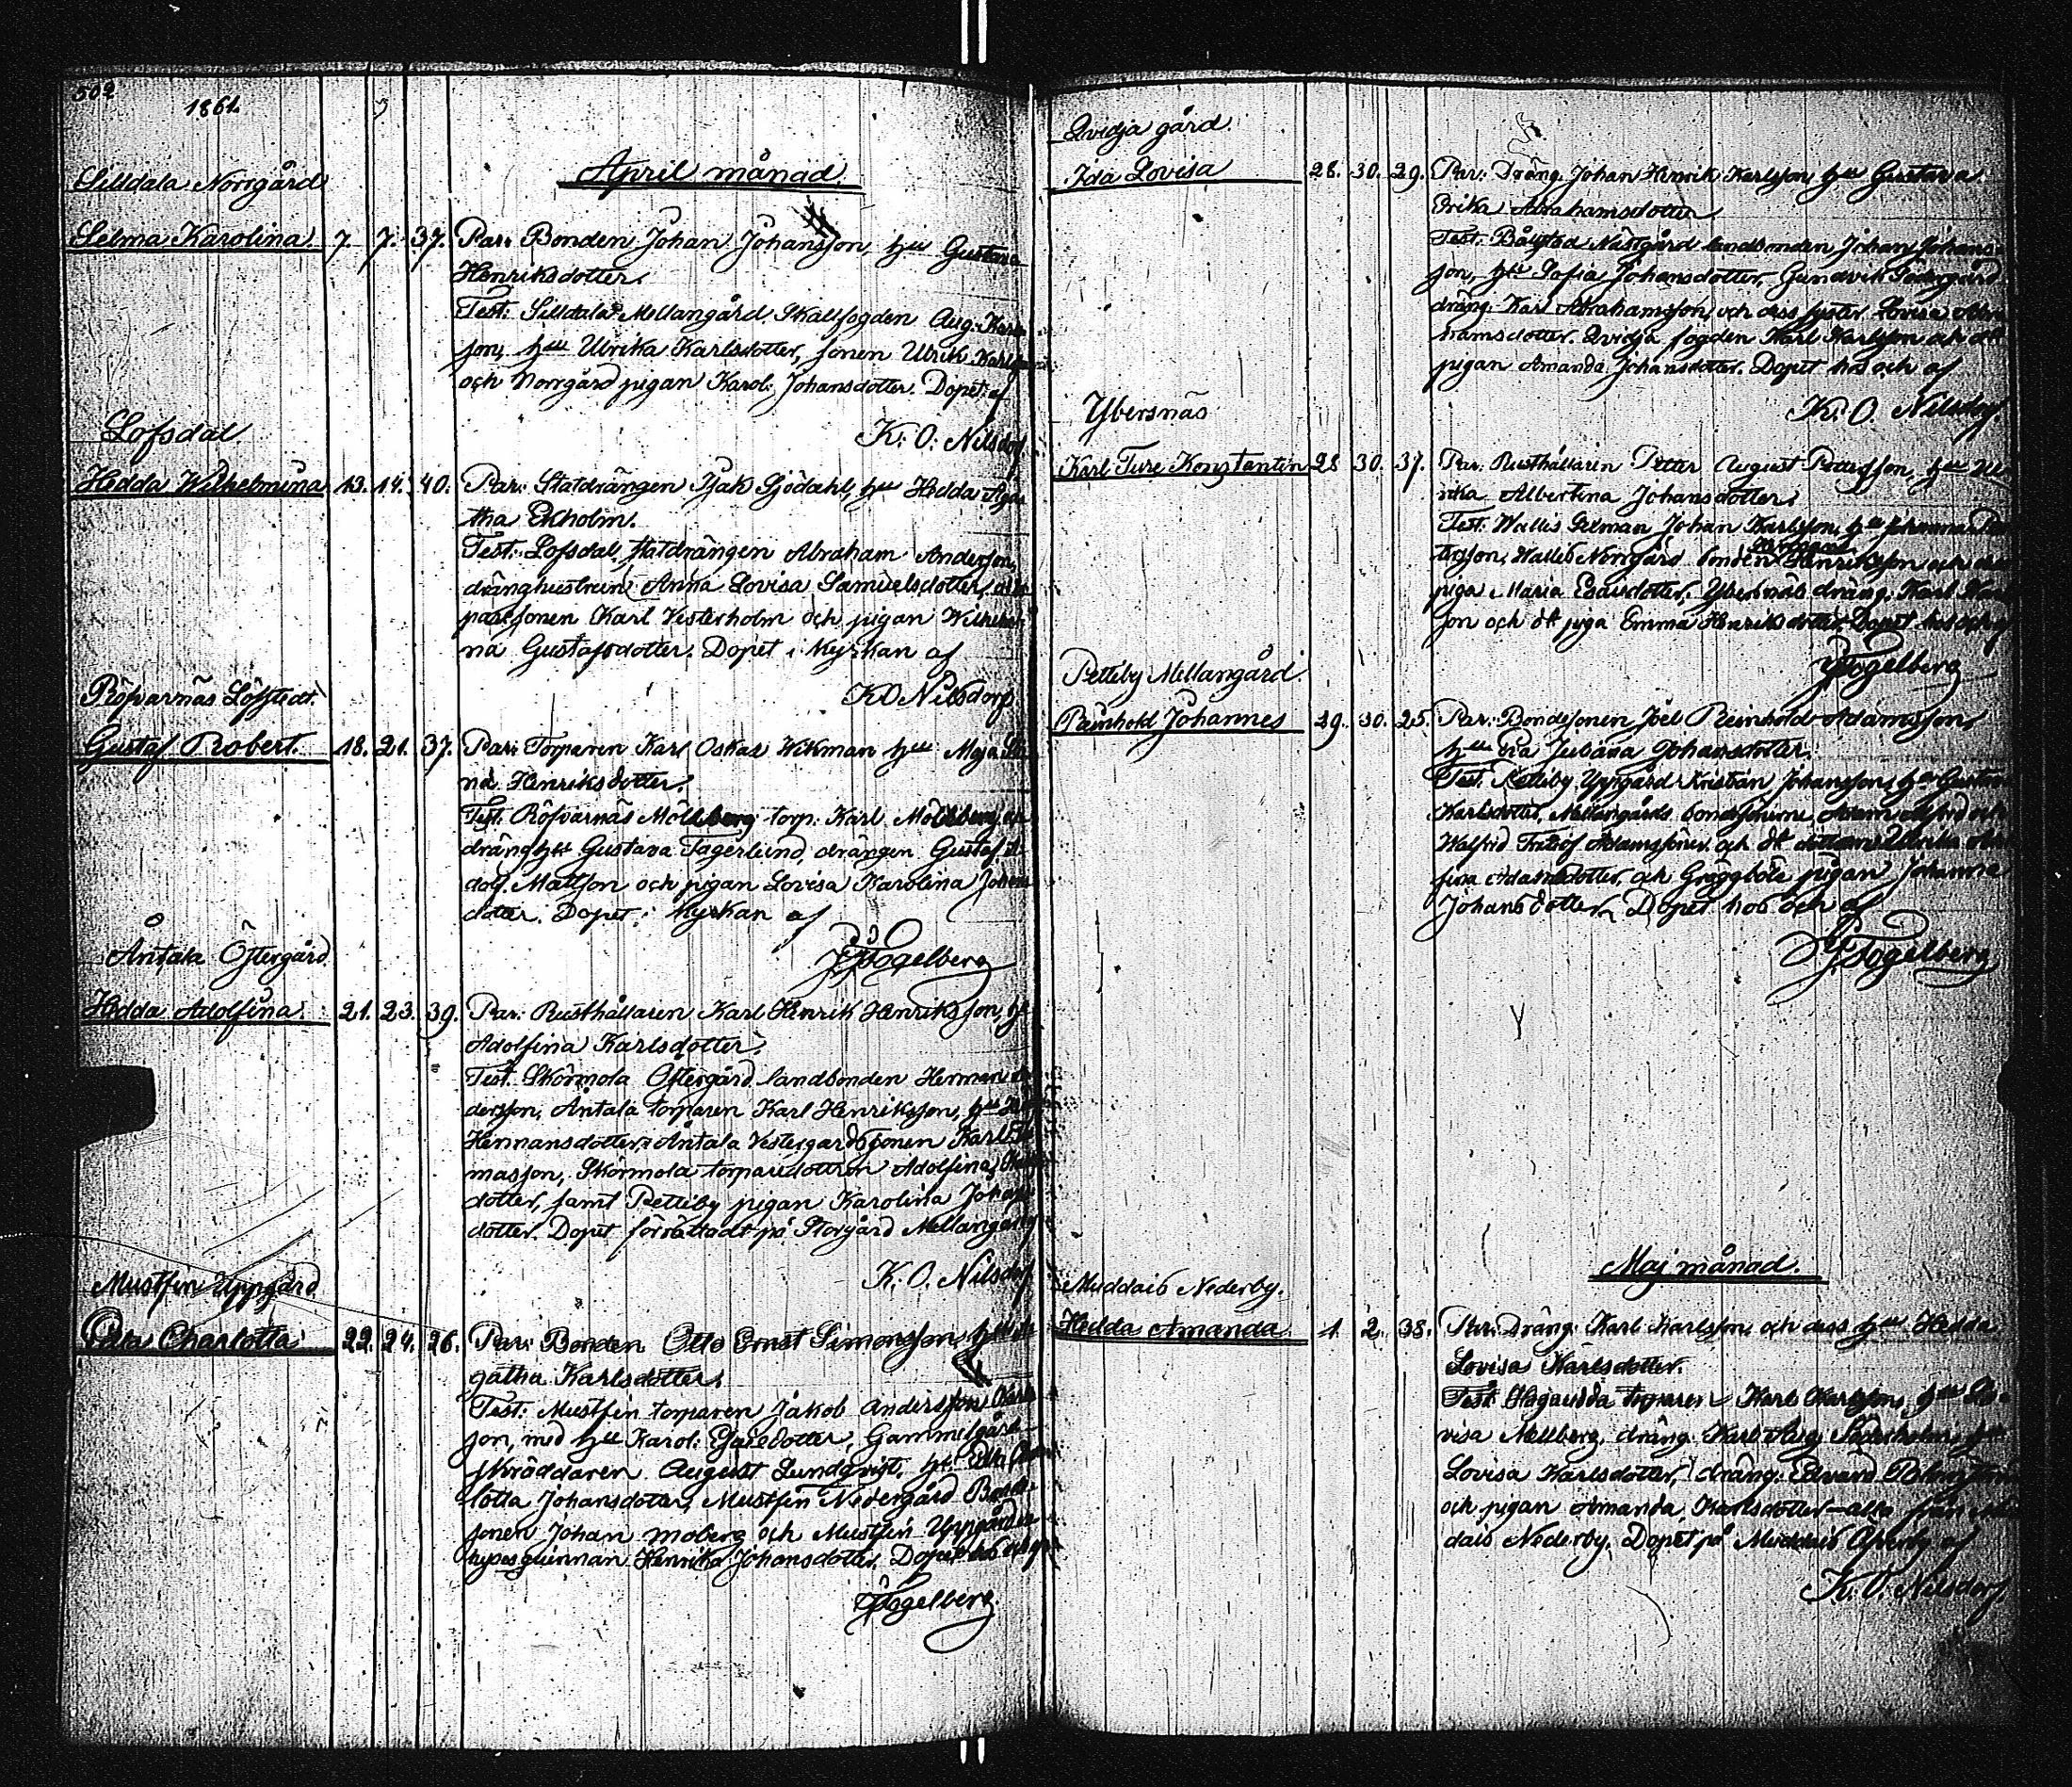 502
1861
Silldala Norrgård
April månad.
Selma Karolina. 7. 7. 37. Par: Bonden Johan Johansson, hu Gustava
Henriksdotter.
Test: Silldala Mellangård Skallfogden Aug. Karls
son, hu Ulrika Karlsdotter, sonen Ulrik Karlsson
och Norrgård pigan Karol: Johansdotter. Dopet af
K: O: Nilsdorf
Lofsdal.
Hedda Wilhelmina 13. 14. 40. Par: Statdrängen Isak Sjödahl, hu Hedda Aga
tha Ekholm.
Test: Lofsdal, statdrängen Abraham Andersson,
dränghustrun Anna Lovisa Samuelsdotter,
sonen Karl Vesterholm och pigan Wilhelmi
na Gustafsdotter. Dopet i kyrkan af
K O Nilsdorf
Röfvarnäs Löfstedt.
Gustaf Robert. 18. 21. 37. Par: Torparen Karl Oskar Wikman hu Maja
na Henriksdotter.
Test: Röfvarnäs Möllberg torp: Karl Möllberg,
dräng hu Gustava Fagerlund, drängen Gustaf A
dolf Mattson och pigan Lovisa Karolina Johans
dotter. Dopet i kyrkan af
Fogelberg
Åntala Östergård
Hedda Adolfina. 21. 23. 39. Par: Rusthållaren Karl Henrik Henriksson, hu
Adolfina Karlsdotter.
Test: Skörmola Östergård landbonden Herman An
dersson, Åntala torparen Karl Henriksson, hu
Hermansdotter, Åntala Vestergård sonen Karl
masson, Skörmola torparedottren Adolfina
dotter, samt Petteby pigan Karolina Johans
dotter. Dopet förrättadt på Storgård Mellangård
K: O. Nilsdorf
Mustfin Uppgård
Charlotta 22. 24. 26. Par: Bonden Otto Ernst Simonsson, hu A
gatha Karlsdotter.
Test: Mustfin torparen Jakob Andersson
son, med hu Karol: Isaksdotter, Gammelgård
skräddaren August Lundqvist, hu Char
lotta Johansdotter, Mustfin Nedergård
sonen Johan Moberg och Mustfin Uppgård
hyresqvinnan Henrika Johansdotter. Dopet hos och af
Fogelberg.
Qvidja gård.
Ida Lovisa 28. 30. 29. Par: Dräng. Johan Henrik Karlsson, hu Gustava
Erika Abrahamsdotter
Test: Nästgård landbonden Johan Johans
son, hu Sofia Johansdotter, Gundvik Södergård
dräng. Karl Abrahamsson och dess syster Lovisa Abra
hamsdotter. Qvidja fogden Karl Karlsson och
pigan Amanda Johansdotter. Dopet hos och af
K: O. Nilsdorf
Ybersnäs
Karl Ture Konstantin 28 30. 37. Par: Rusthållaren Petter August Pettersson, hu Ul
rika Albertina Johansdotter.
Test: Wallis Johan Karlsson, hu Johanna Pe
tersson, Wallis Norrgård bonden Henriksson och
piga Maria Esaisdotter, Ybersnäs dräng. Karl Karls
son och dt piga Emma Henriksdotter Dopet hos och af
Fogelberg
Petteby Mellangård
Reinhold Johannes 29. 30. 25. Par: Bondesonen Joel Reinhold Adamsson,
hu Juliana Johansdotter.
Test: Petteby Uppgård Kristian Johansson, hu Gustava
Karlsdotter, Mellangårds bondsönerne Adam Alfred och
Walfrid Fritiof Adamssöner och dt dottern Ulrika
fina Adamsdotter, och Gräggböle pigan Johanna
Johansdotter. Dopet hos och af
Fogelberg
Maj månad.
Muddais Nederby.
Hedda Amanda 1. 2. 38. Par: Dräng. Karl Karlsson, och dess hu Hedda
Lovisa Karlsdotter.
Test: torparen Karl Karlsson, hu Lo
visa Mellberg, dräng. Karl Aug. Söderholm, hu
Lovisa Karlsdotter, dräng. Edvard
och pigan Amanda Karlsdotter — alla från Mud
dais Nederby. Dopet på Muddais Öfverby af
K. O. Nilsdorf